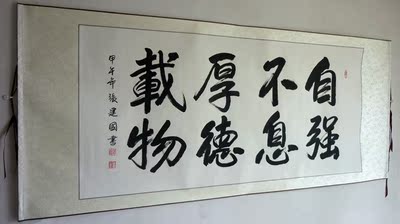 自强
不息
厚德
載物
甲午年張建國書